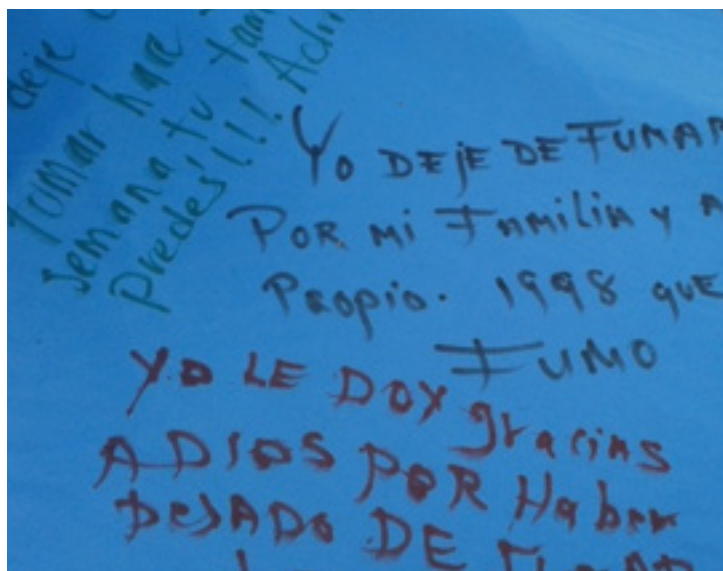 deje
fumar hare
semana, tu tam
predes!!! Adi
YO DEJE DE FUMAR
POR Mi FAMiLiA y A
PROPiO. 1998 QUE
FUMO
YO LE DOY gracias
A DIOS POR Haber
DEJADO DE FUMAR